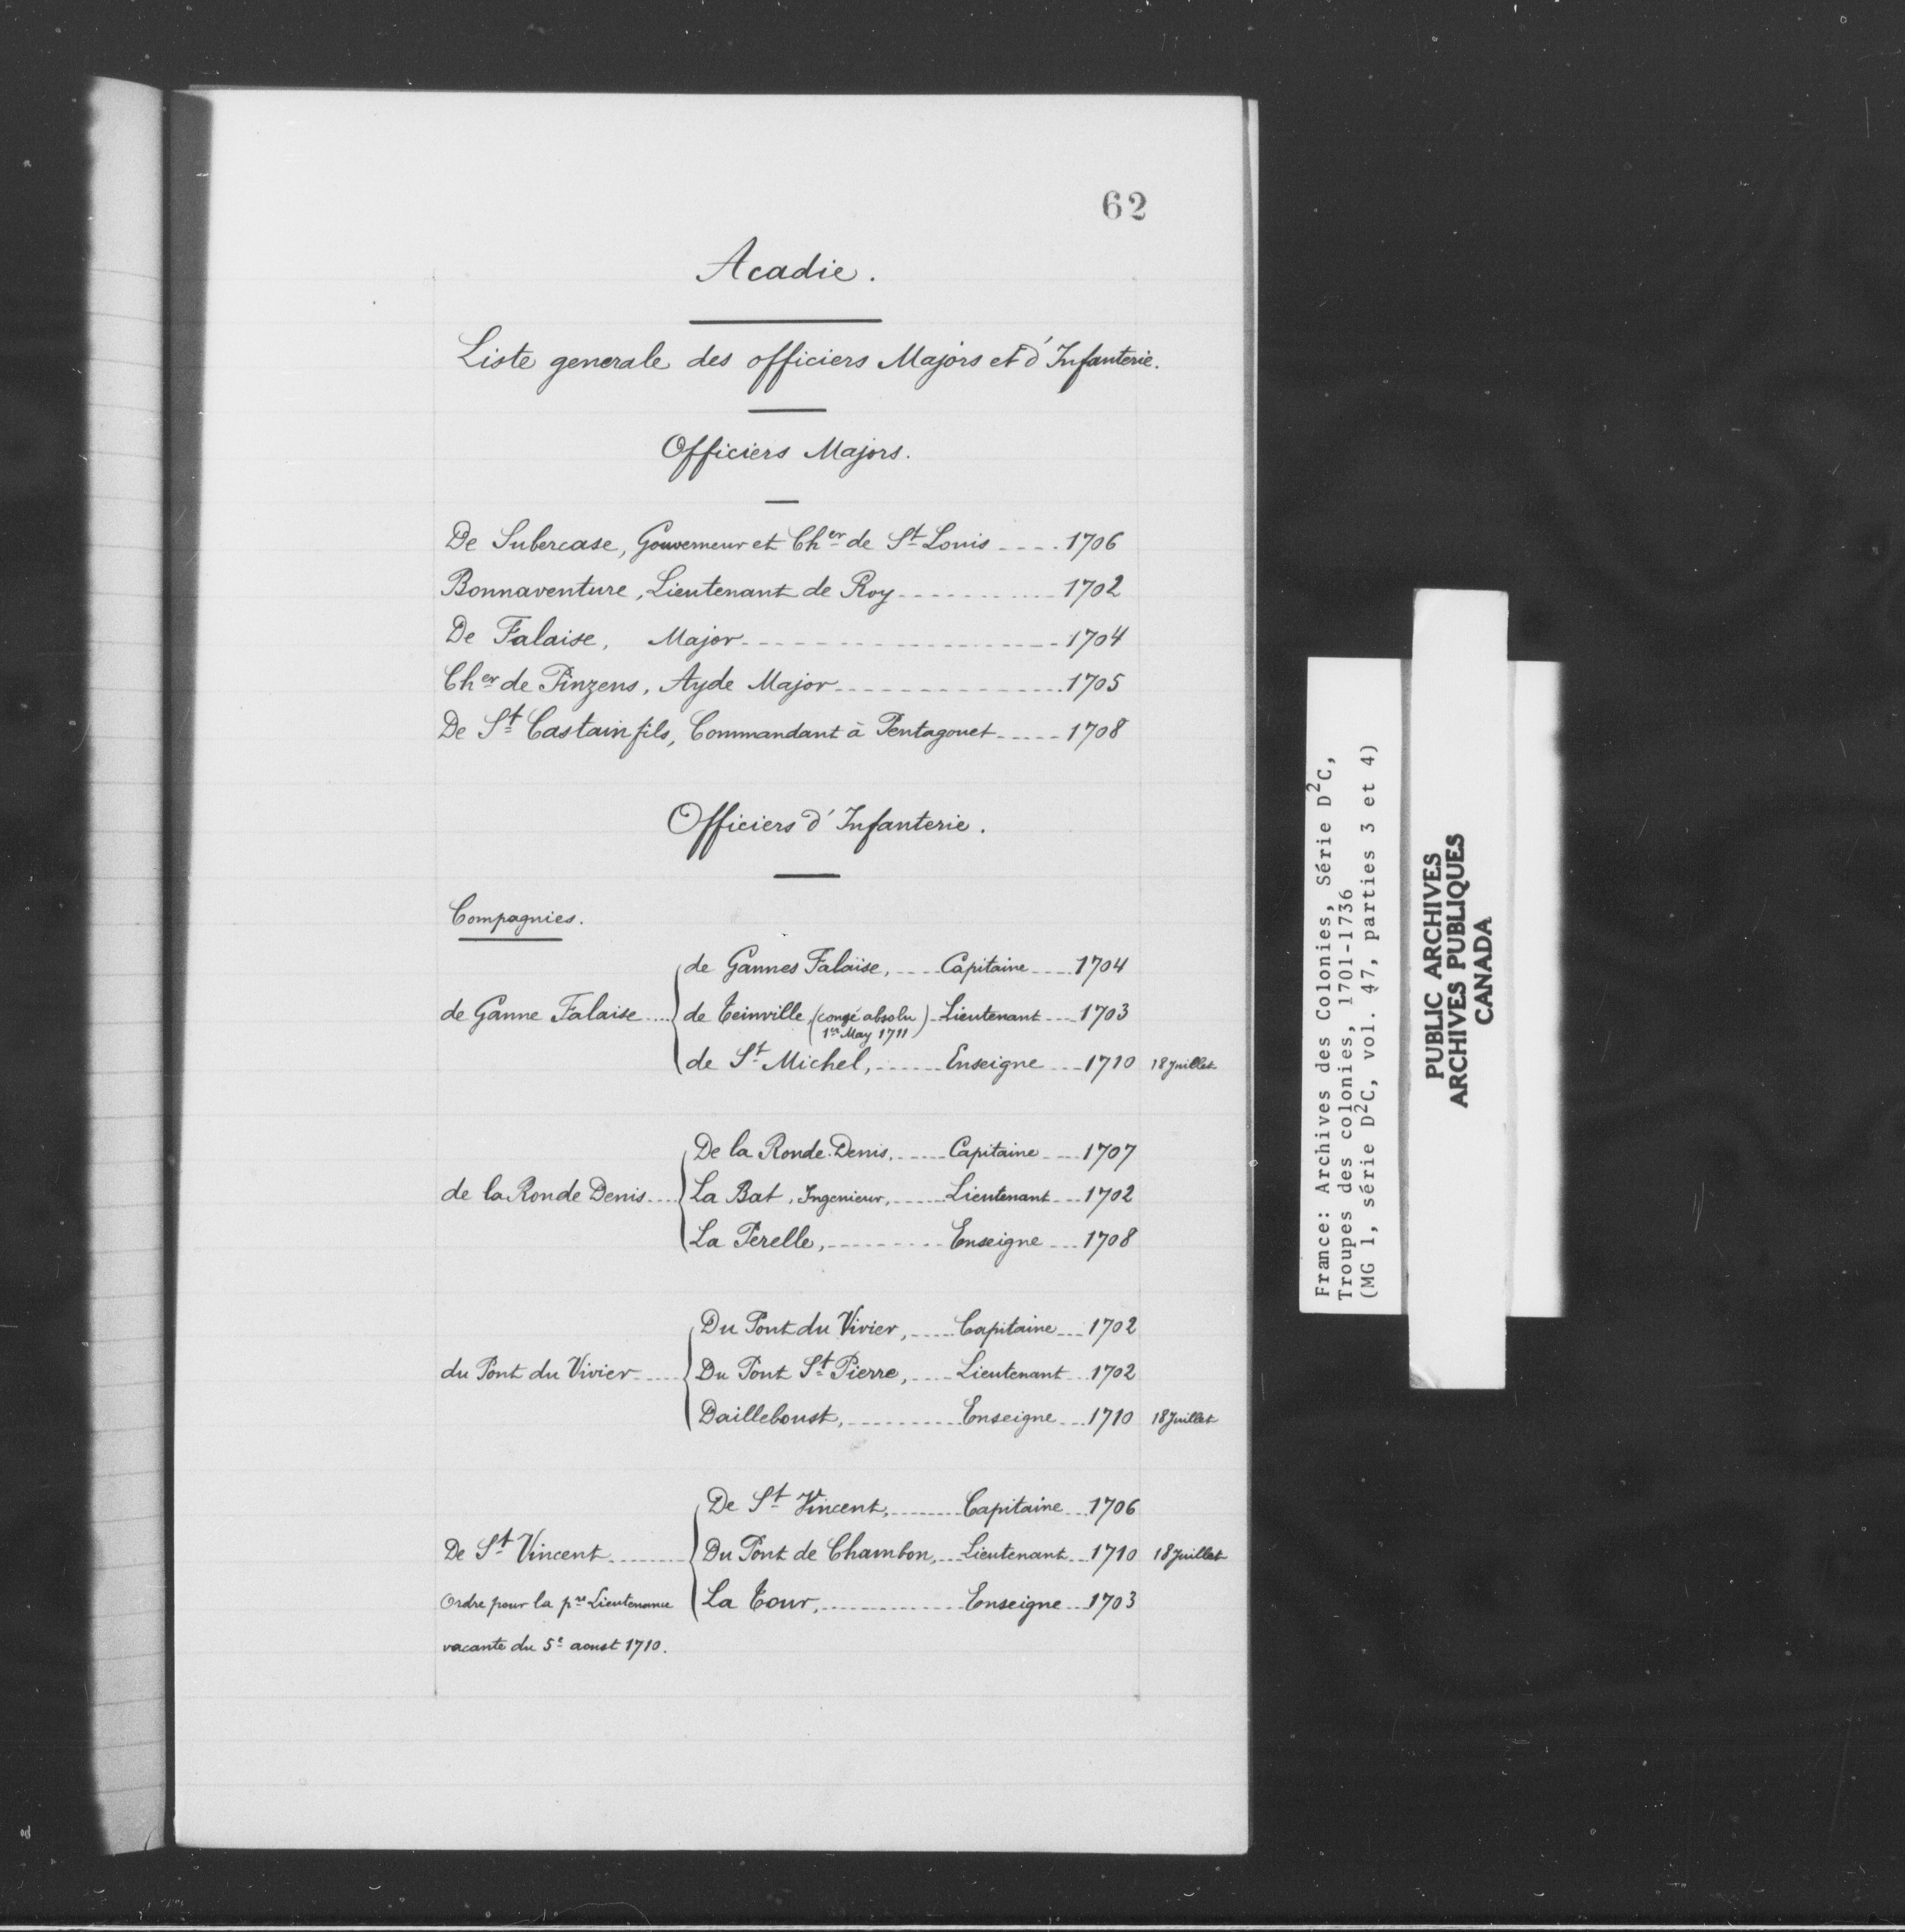 62
Acadie.
Liste generale des officiers Majors et d'Infanterie.
Officiers Majors.
De Subercase, Gouverneur et Cher de St Louis 1706
Bonnaventure, Lieutenant de Roy 1702
De Falaise, Major 1704
Cher de Pinzens, Ayde Major 1705
De St Castain fils, Commandant à Pentagouet 1708
Officiers d'Infanterie.
Compagnies.
de Gannes Falaise, Capitaine 1704
de Ganne Falaise de Teinville (congé absolu Lieutenant 1703
1er May 1711)
de St Michel, Enseigne 1710 18 Juillet
De la Ronde Denis, Capitaine 1707
de la Ronde Denis La Bat, Ingenieur, Lieutenant 1702
La Perelle, Enseigne 1708
Du Pont du Vivier, Capitaine 1702
du Pont du Vivier Du Pont St Pierre, Lieutenant 1702
Dailleboust, Enseigne 1710 18 Juillet
De St Vincent, Capitaine 1706
De St Vincent Du Pont de Chambon, Lieutenant 1710 18 Juillet
Ordre pour la pre Lieutenance La Tour, Enseigne 1703
vacante du 5e aoust 1710.
France: Archives des Colonies, Série D2C,
Troupes des colonies, 1701-1736
(MG 1, série D2C, vol. 47, parties 3 et 4)
PUBLIC ARCHIVES
ARCHIVES PUBLIQUES
CANADA